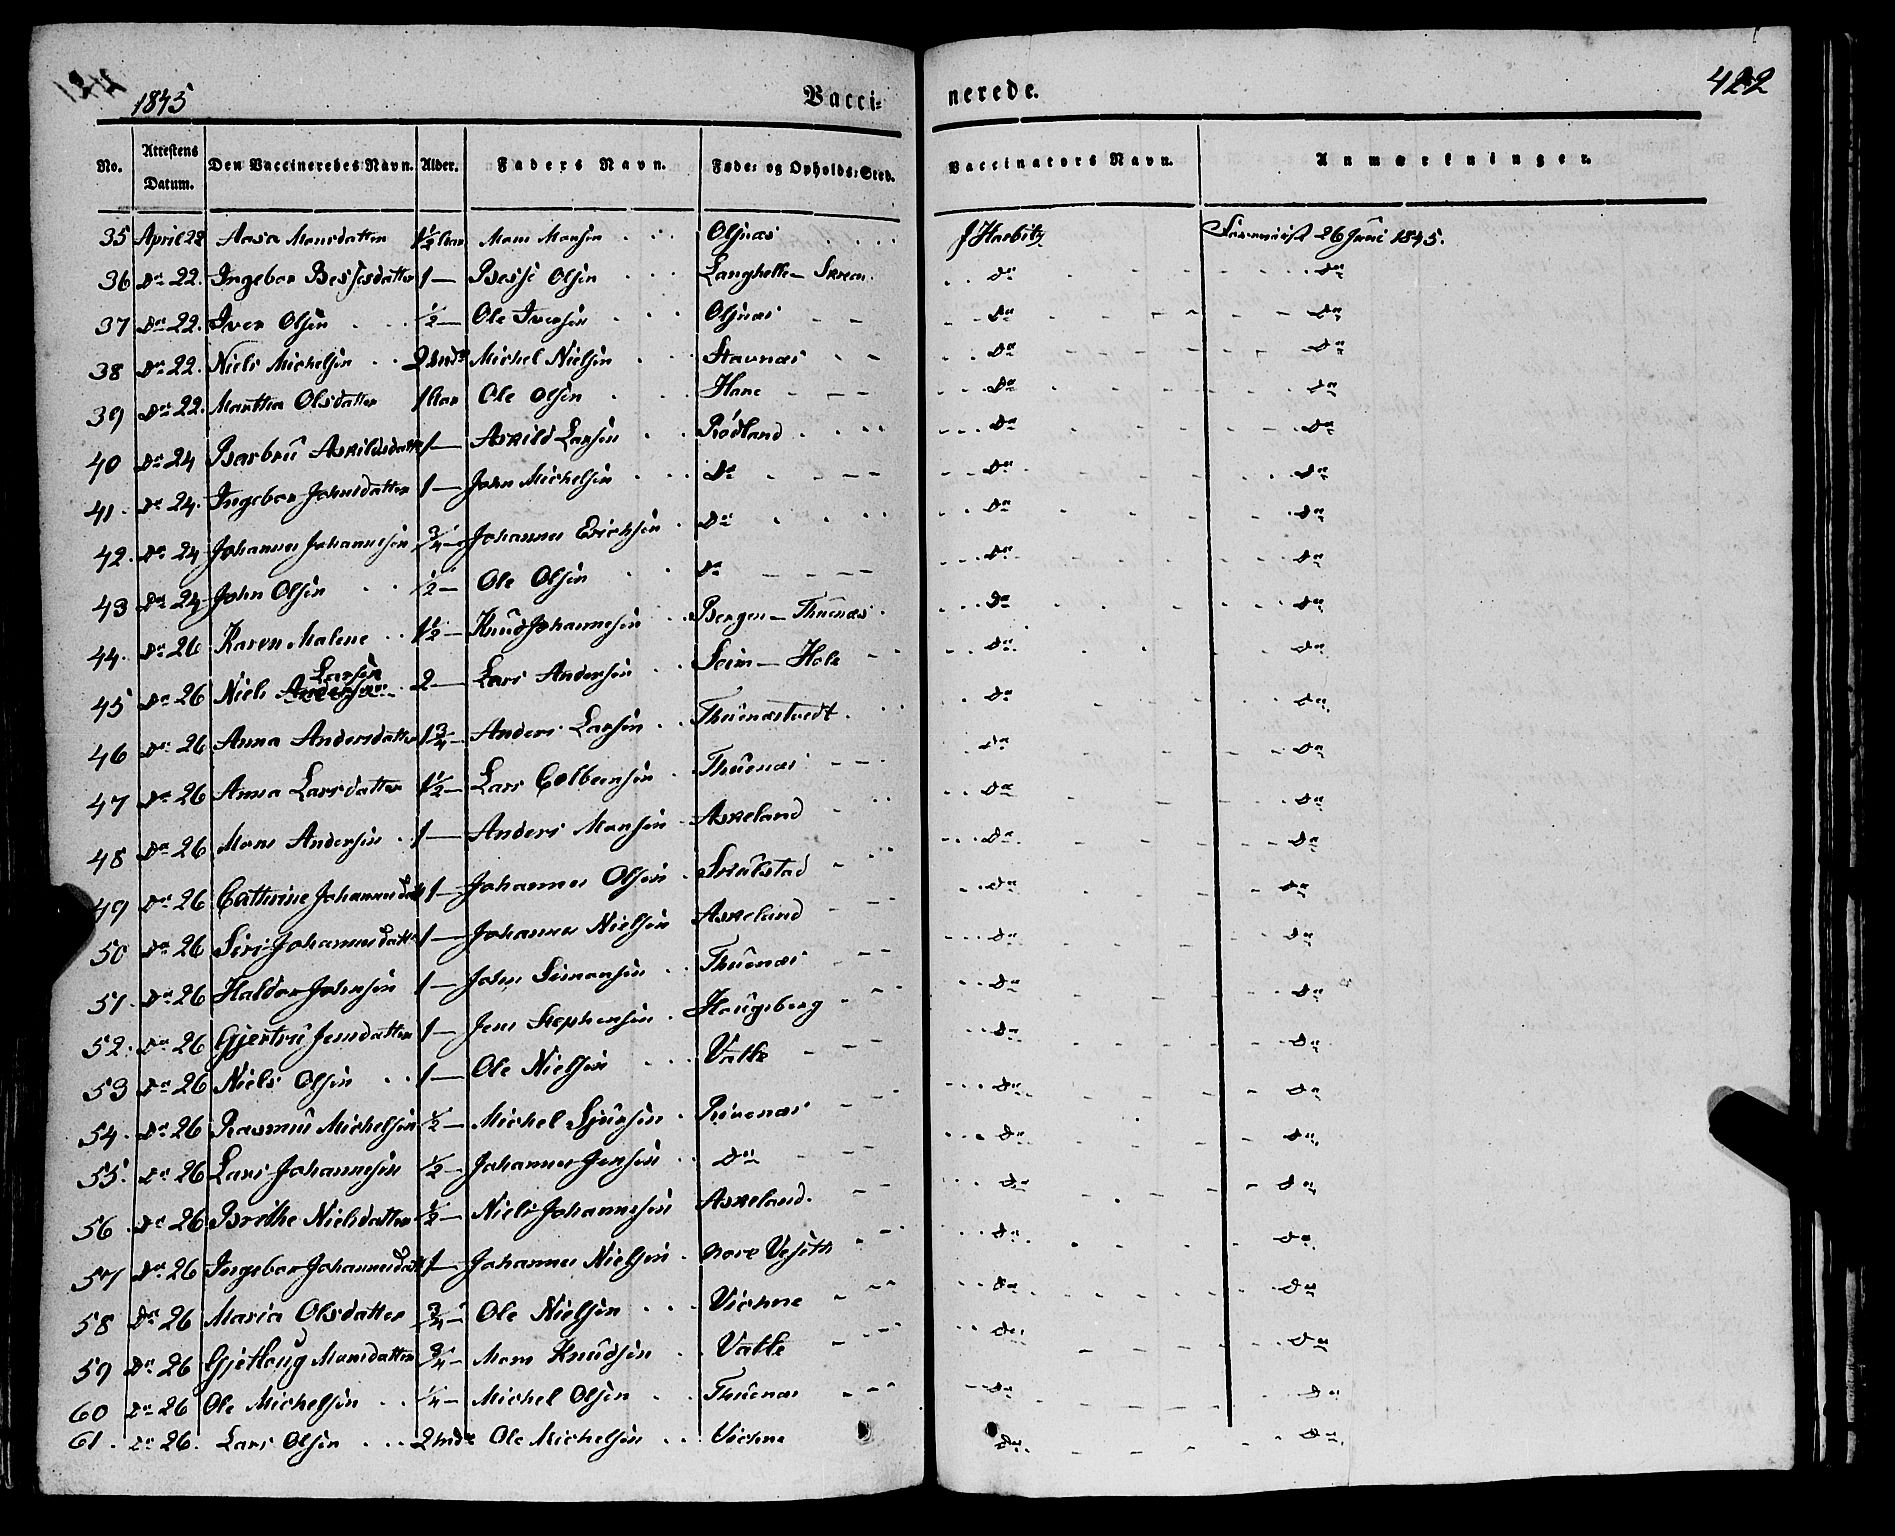 1845 Vacci- nerede. 422
No. Attestens Datum. Den Vaccineredes Navn. Alder. Faders Navn. Føde- og Opholds-Sted. Vaccinators Navn. Anmærkninger.
35 April 22 Aasa Monsdatter 1½ Aar Mons Monsen Olsnæs J Harbitz 26 Juni 1845.
36 Do 22. Ingebor Bessesdatter 1 — Besse Olsen Langhelle — Do Do
37 Do 22. Iver Olsen ½ — Ole Iversen Olsnæs Do Do
38 Do 22. Niels Michelsen 2 Mickel Nielsen Stavnæs Do Do
39 Do 22. Martha Olsdatter 1 Aar Ole Olsen Hane Do Do
40 Do 24 Barbru Askildsdatter 1 — Askild Larsen Rødland Do Do
41. Do 24. Ingebor Johnsdatter 1 — John Michelsen Do Do Do
42. Do 24 Johannes Johannesen ¾ — Johannes Erichsen Do Do Do
43 Do 24 John Olsen ½ — Ole Olsen Do Do Do
44. Do 26 Karen Malene 1½ — Knud Johannesen Bergen — Thuenæs Do Do
45 Do 26 Niels Larsen 2 — Lars Andersen Seim — Hole Do Do
46 Do 26 Anna Andersdatter 1¾ — Anders Larsen Thuenæstvedt Do Do
47 Do 26 Anna Larsdatter 1½ — Lars Colbensen Thuenæs Do Do
48 Do 26 Mons Andersen 1 — Anders Monsen Askeland Do Do
49 Do 26 Cathrine Johannesdatt 1 — Johannes Olsen Do Do
50 Do 26 Siri Johannesdatt 1 — Johannes Nielsen Askeland Do Do
51. Do 26 Haldor Johnsen 1 — John Simonsen Thuenæs Do Do
52. Do 26 Gjertru Jensdatter 1 — Jens Stephensen Hougsberg Do Do
53 Do 26 Niels Olsen 1 — Ole Nielsen Valle Do Do
54. Do 26 Rasmus Michelsen ½ — Mickel Sjursen Rivenæs Do Do
55. Do 26 Lars Johannesen ½ — Johannes Jensen Do Do Do
56. Do 26 Brithe Nielsdatter ½ — Niels Johannesen Askeland. Do Do
57 Do 26 Ingebor Johannesdatt 1 — Johannes Nielsen Do Do
58 Do 26 Maria Olsdatter ¾ — Ole Nielsen Vichne Do Do
59 Do 26 Gjetloug Monsdatter ¾ — Mons Knudsen Valle Do Do
60 Do 26 Ole Michelsen ¼ — Michel Olsen Thuenæs Do Do
61. Do 26. Lars Olsen 2 Ole Michelsen Vichne Do Do